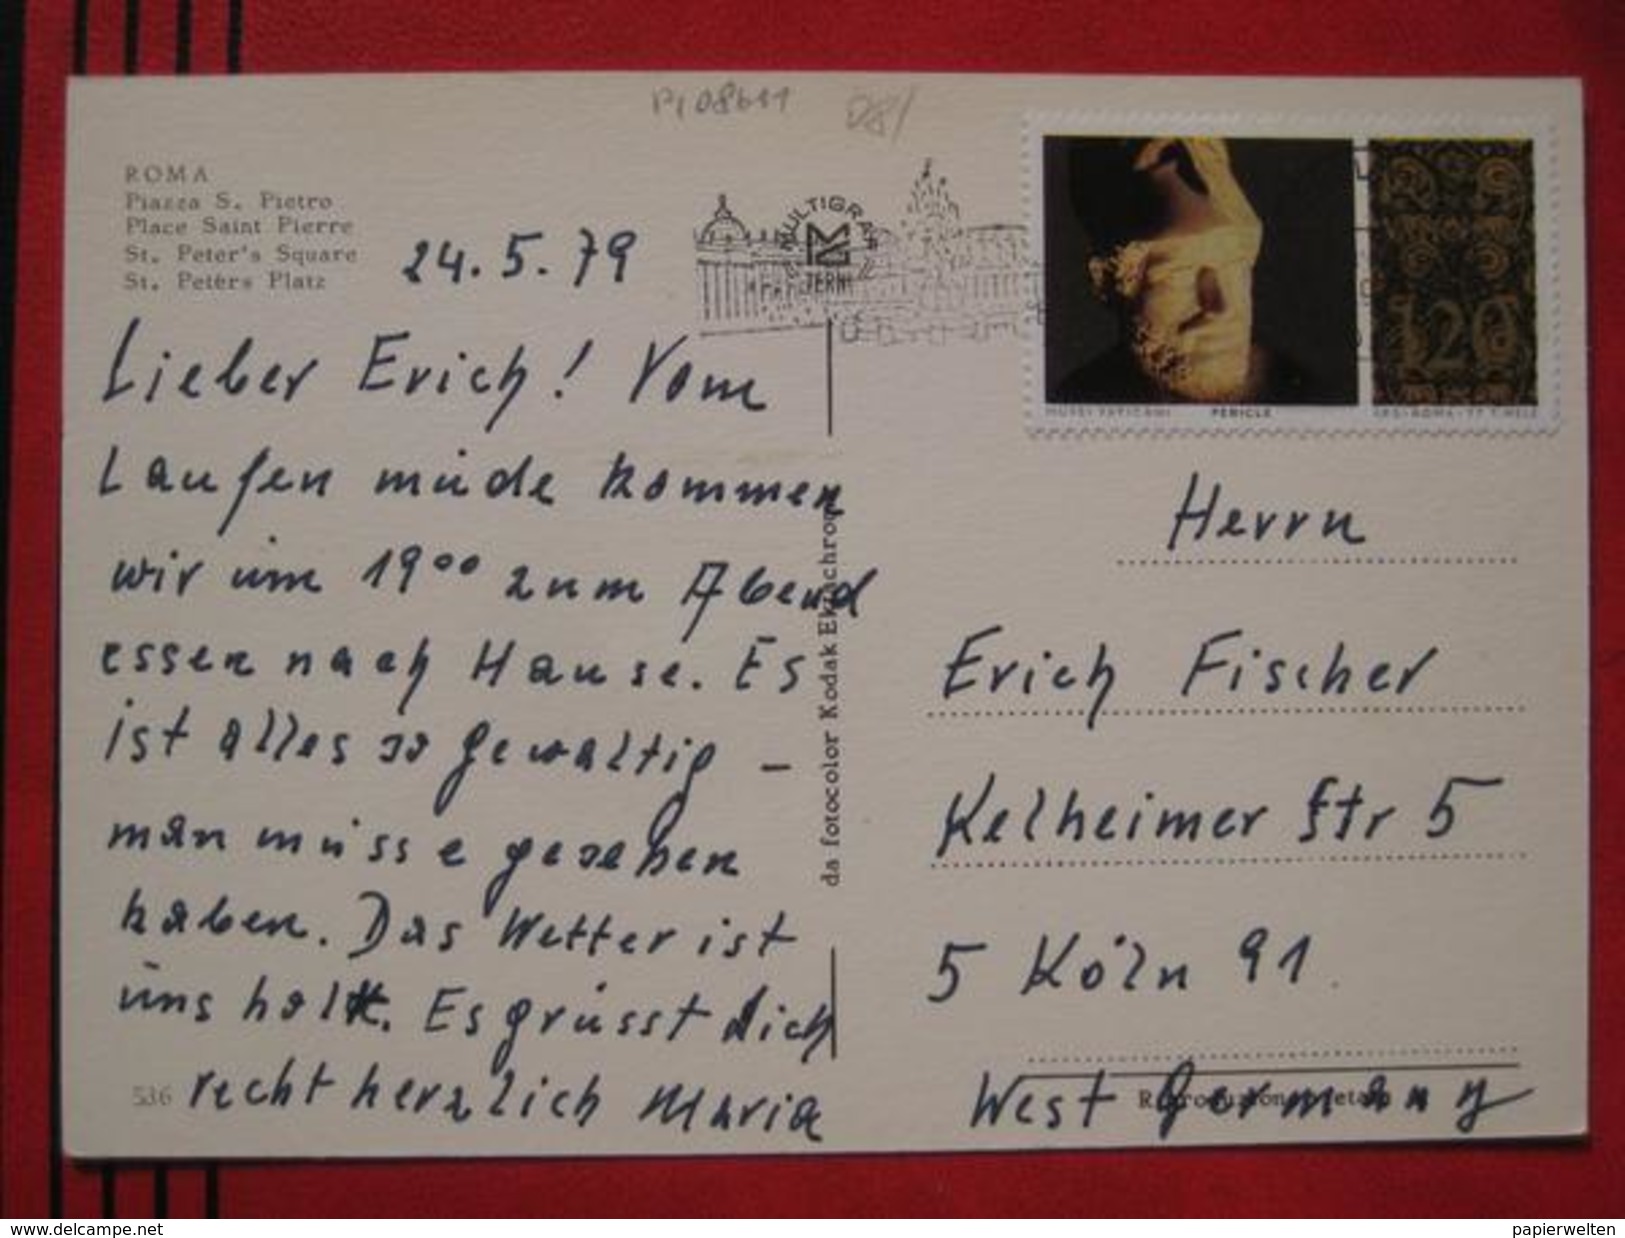 ROMA
Piazza S. Pietro
Place Saint Pierre
St. Peter's Square
St. Peters Platz
24.5.79
Lieber Erich! Vom
Laufen müde kommen
wir um 19⁰⁰ zum Abend
essen nach Hause. Es
ist alles so gewaltig –
man müsse gesehen
haben. Das Wetter ist
uns hold. Es grüsst dich
recht herzlich Maria
536
da fotocolor Kodak Ektachrome
MULTIGRAF
TERNI
MUSEI VATICANI PERICLE
120
ROMA
Herrn
Erich Fischer
Kelheimer Str 5
5 Köln 91
West Germany
www.delcampe.net
papierwelten